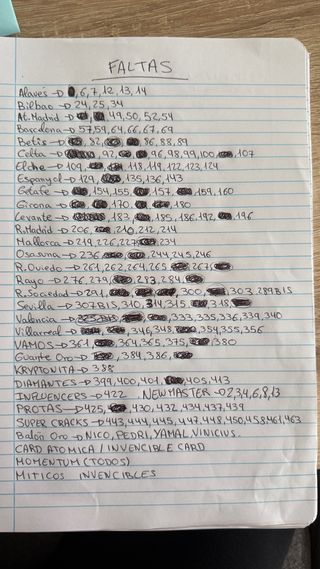 FALTAS
Alavés → 6, 7, 12, 13, 14
Bilbao → 24, 25, 34
At. Madrid → 49, 50, 52, 54
Barcelona → 57, 59, 64, 66, 67, 69
Betis → 82, 86, 88, 89
Celta → 92, 96, 98, 99, 100, 107
Elche → 109, 118, 119, 122, 123, 124
Espanyol → 129, 135, 136, 143
Getafe → 154, 155, 157, 159, 160
Girona → 170, 180
Levante → 183, 185, 186, 192, 196
R. Madrid → 206, 210, 212, 214
Mallorca → 219, 226, 227, 234
Osasuna → 236, 244, 245, 246
R. Oviedo → 261, 262, 264, 265, 267
Rayo → 276, 279, 283, 284
R. Sociedad → 291, 300, 303, 289 BIS
Sevilla → 307 BIS, 310, 314, 315, 318
Valencia → 333, 335, 336, 339, 340
Villarreal → 346, 348, 354, 355, 356
VAMOS → 361, 364, 365, 375, 380
Guante Oro → 384, 386
KRYPTONITA → 388
DIAMANTES → 399, 400, 401, 405, 413
INFLUENCERS → 422 NEW MASTER → 2, 3, 4, 6, 8, 13
PROTAS → 425, 430, 432, 434, 437, 439
SUPER CRACKS → 443, 444, 445, 447, 448, 450, 458, 461, 463
Balón Oro → NICO, PEDRI, YAMAL, VINICIUS.
CARD ATOMICA / INVENCIBLE CARD
MOMENTUM (TODOS)
MITICOS INVENCIBLES